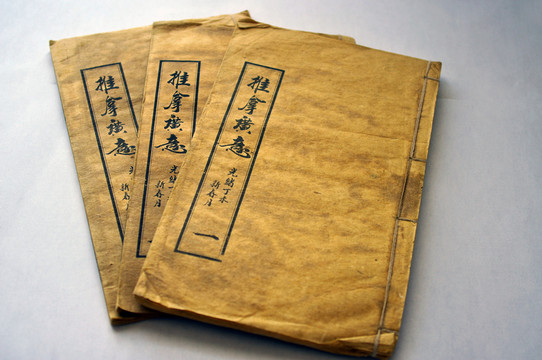 推拿廣意
光
新春
推拿廣意
光緒
新春月
推拿廣意
光緒丁未
新春月
一